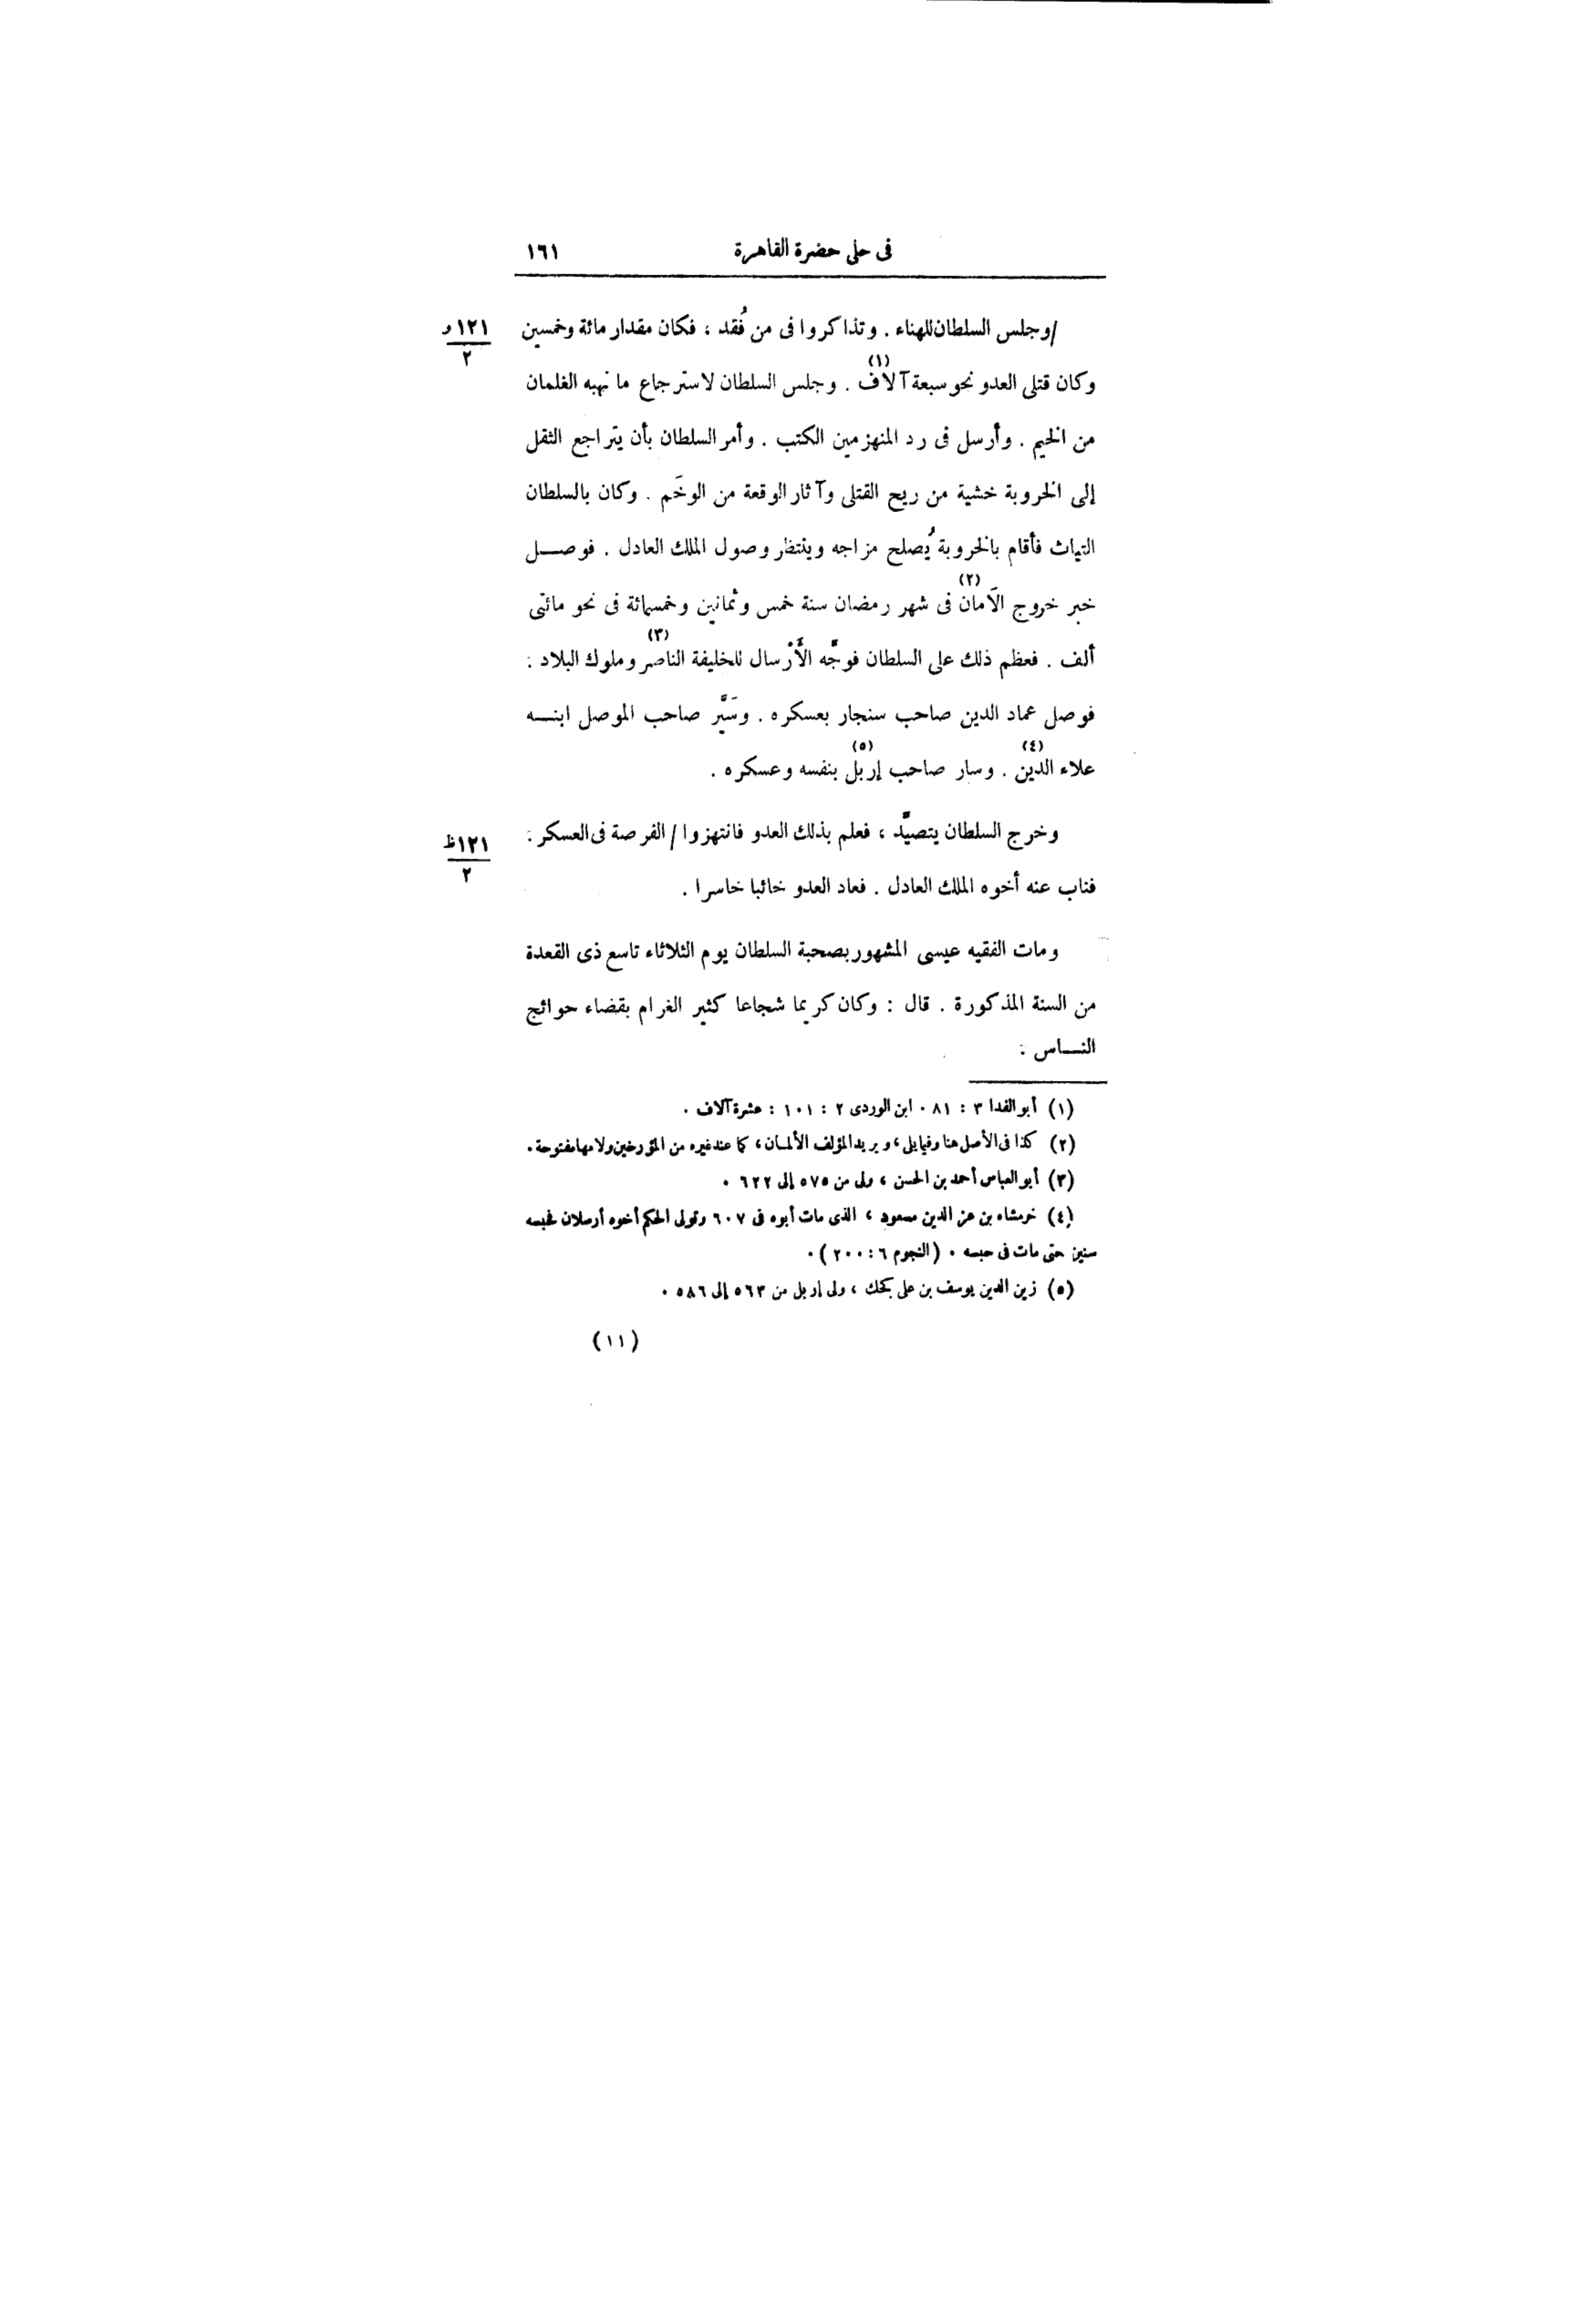 فى حلى حضرة القاهرة ١٦١
/وجلس السلطان للهناء . وتذاكروا فى من فُقد ، فكان مقدار مائة وخمسين
١٢١و
٢
وكان قتلى العدو نحو سبعة آلاف (١) . وجلس السلطان لاسترجاع ما نهبه الغلمان
من الخيم . وأرسل فى رد المنهزمين الكتب . وأمر السلطان بأن يتراجع الثقل
إلى الخروبة خشية من ريح القتلى وآثار الوقعة من الوخَم . وكان بالسلطان
التياث فأقام بالخروبة يُصلح مزاجه وينتظر وصول الملك العادل . فوصــل
خبر خروج الَامان (٢) فى شهر رمضان سنة خمس وثمانين وخمسمائة فى نحو مائتى
ألف . فعظم ذلك على السلطان فوجَّه الأَرْسال للخليفة الناصر (٣) وملوك البلاد :
فوصل عماد الدين صاحب سنجار بعسكره . وسَيَّر صاحب الموصل ابنــه
علاء الدين (٤) . وسار صاحب إربل (٥) بنفسه وعسكره .
وخرج السلطان يتصيَّد ، فعلم بذلك العدو فانتهزوا / الفرصة فى العسكر :
١٢١ظ
٢
فناب عنه أخوه الملك العادل . فعاد العدو خائبا خاسرا .
ومات الفقيه عيسى المشهور بصحبة السلطان يوم الثلاثاء تاسع ذى القعدة
من السنة المذكورة . قال : وكان كريما شجاعا كثير الغرام بقضاء حوائج
النــاس :
(١) أبو الفدا ٣ : ٨١ . ابن الوردى ٢ : ١٠١ : عشرة آلاف .
(٢) كذا فى الأصل هنا وفيما يلى ، ويريد المؤلف الألمـان ، كما عند غيره من المؤرخين ولامها مفتوحة .
(٣) أبو العباس أحمد بن الحسن ، ولى من ٥٧٥ إلى ٦٢٢ .
(٤) خرمشاه بن عز الدين مسعود ، الذى مات أبوه فى ٦٠٧ وتولى الحكم أخوه أرسلان فحبسه
سنين حتى مات فى حبسه . (النجوم ٦ : ٢٠٠) .
(٥) زين الدين يوسف بن على كجك ، ولى إربل من ٥٦٣ إلى ٥٨٦ .
(١١)